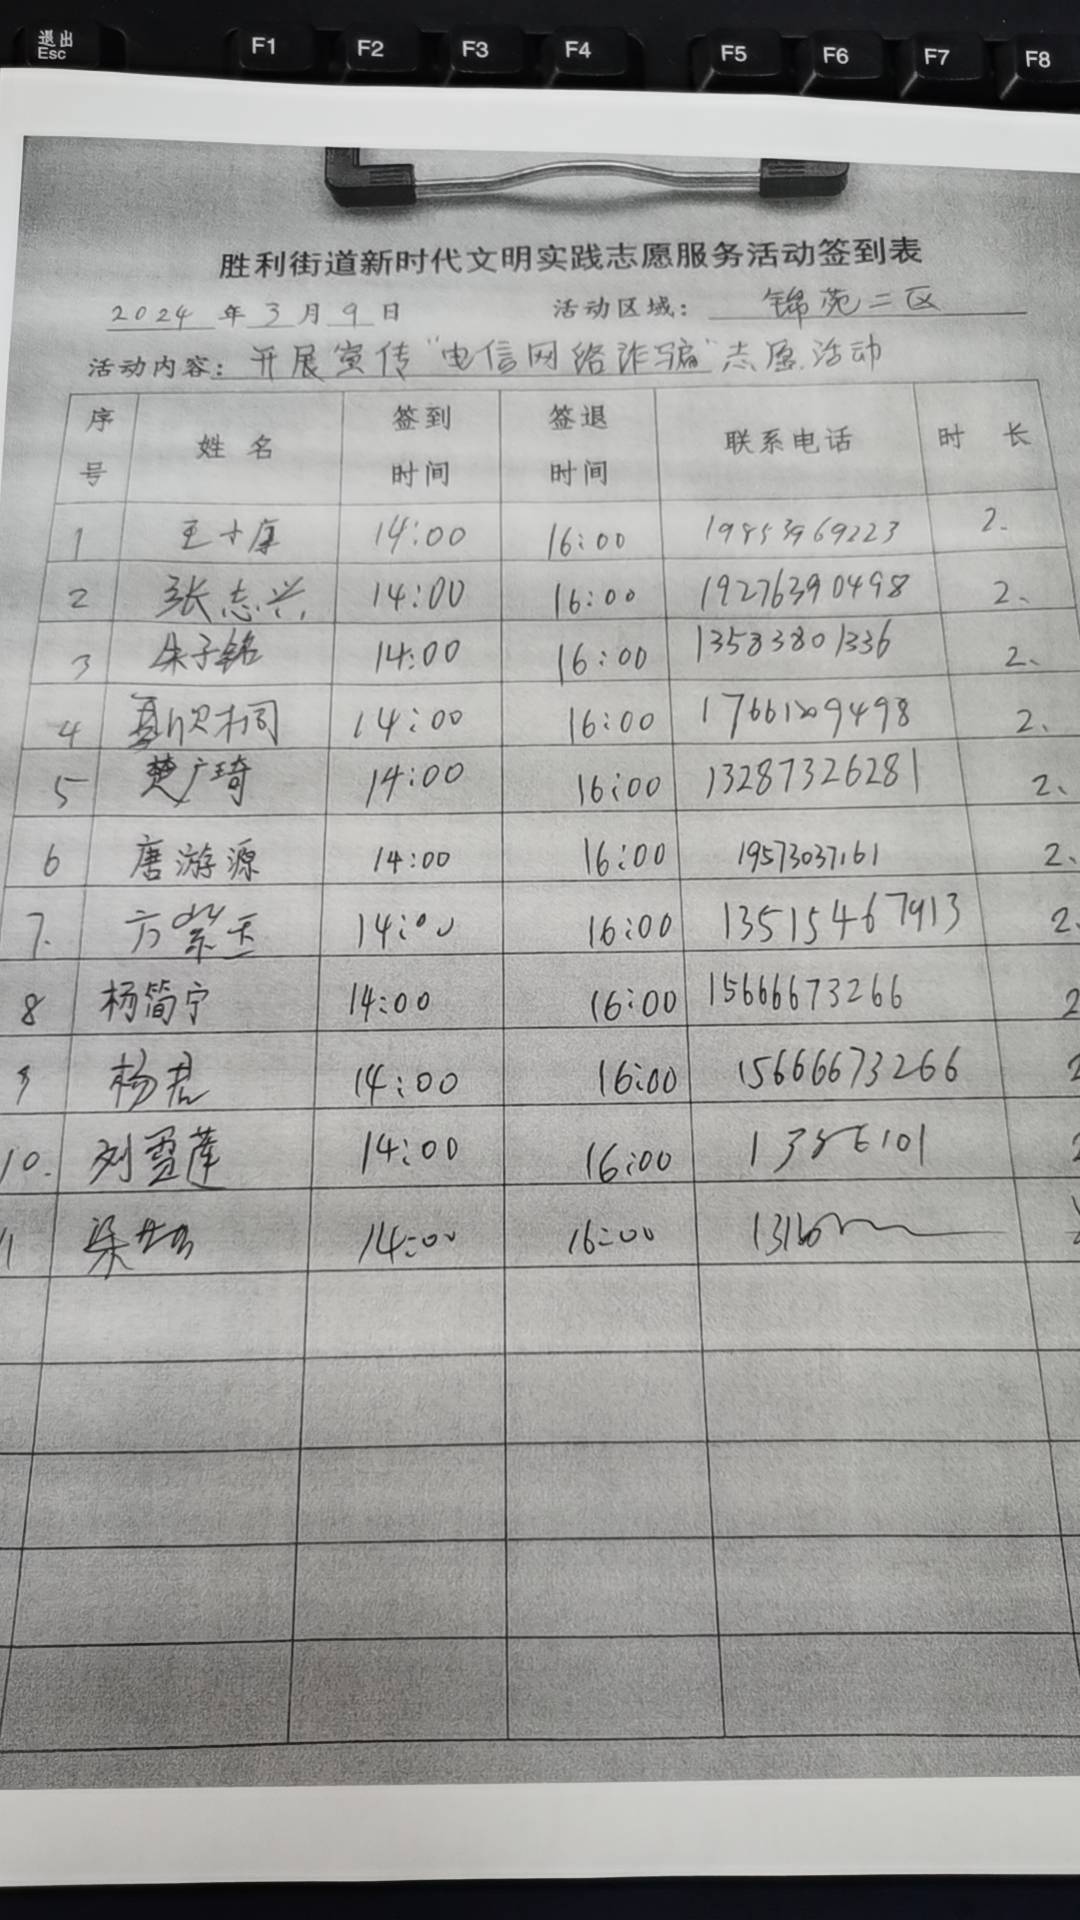 退出
Esc F1 F2 F3 F4 F5 F6 F7 F8
胜利街道新时代文明实践志愿服务活动签到表
2024 年 3 月 9 日 活动区域: 锦苑二区
活动内容: 开展宣传"电信网络诈骗"志愿活动
序号 姓名 签到时间 签退时间 联系电话 时长
1 14:00 16:00 2.
2 张志兴 14:00 16:00 19276390498 2.
3 朱子铭 14:00 16:00 13583801336 2.
4 14:00 16:00 2.
5 楚广琦 14:00 16:00 13287326281 2.
6 唐游源 14:00 16:00 19573037161 2.
7. 方紫玉 14:00 16:00 13515467913 2.
8 杨简宁 14:00 16:00 15666673266 2
9 杨君 14:00 16:00 15666673266 2
10. 刘雪莲 14:00 16:00 1386101 2
14:00 16:00